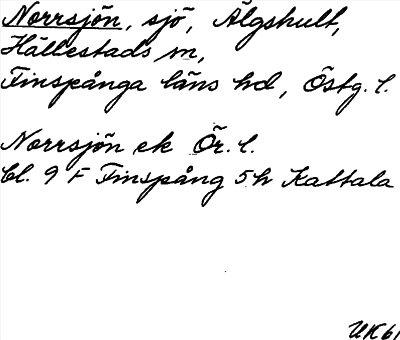 Norrsjön, sjö, Älgshult,
Hällestads sn,
Finspånga läns hd, Östg. l.
Norrsjön ek Ör. l.
bl. 9 F Finspång 5 h Kattala
UK 61